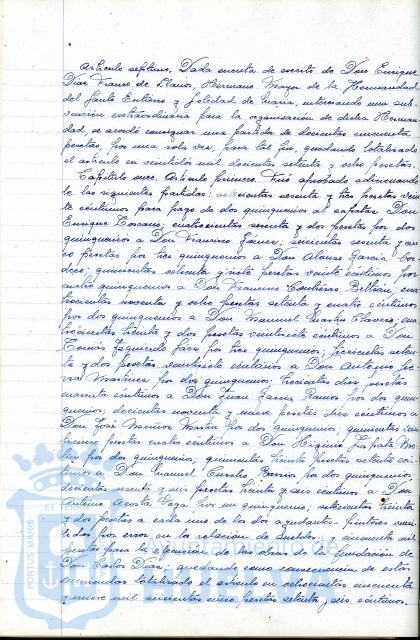 Artículo séptimo. Dada cuenta de escrito de Don Enrique
Díaz Franco de Llanos, Hermano Mayor de la Hermandad
del Santo Entierro y Soledad de María, interesando una sub-
vención extraordinaria para la organización de dicha Herman-
dad, se acordó consignar una partida de doscientas cincuenta
pesetas, por una sola vez, para tal fin, quedando totalizado
el artículo en veintidós mil doscientas setenta y ocho pesetas.
Capítulo once. Artículo primero. Fué aprobado adicionando-
le las siguientes partidas: seiscientas sesenta y tres pesetas vein
te céntimos para pago de dos quinquenios al capataz Don
Enrique cuatrocientas sesenta y dos pesetas por dos
quinquenios a Don Francisco seiscientas setenta y cin-
co pesetas por tres quinquenios a Don Alonso García
quinientas setenta y siete pesetas veinte céntimos por
cuatro quinquenios a Don Francisco Contreras Beltrán; cua
trocientas noventa y ocho pesetas setenta y cuatro céntimos
por dos quinquenios a Don Manuel Suarez Clavero;
trescientas treinta y dos pesetas veintisiete céntimos a Don
Tomás Izquierdo por tres quinquenios; trescientas seten-
ta y dos pesetas veintisiete céntimos a Don Antonio
Martínez por dos quinquenios; trescientas diez pesetas
cuarenta céntimos a Don Juan García Ramos por dos quin-
quenios; doscientas noventa y nueve pesetas diez céntimos a
Don José por dos quinquenios; quinientas
pesetas cuatro céntimos a Don Higinio Zapata
por dos quinquenios; quinientas treinta pesetas setenta cén-
timos a Don Manuel por dos quinquenios;
doscientas setenta y seis pesetas treinta y seis céntimos a Don
Antonio Acosta por un quinquenio; setecientas treinta
y dos pesetas a cada uno de los dos ayudantes pintores
por error en la relación de sueldos; cincuenta mil
pesetas para la ejecución de las obras de la fundación de
Don Carlos Díaz; quedando como consecuencia de estas
totalizado el artículo en ochocientas cincuenta
y nueve mil seiscientas cinco pesetas setenta y seis céntimos.
PORTUS MARIS
Ayuntamiento de
HUELVA